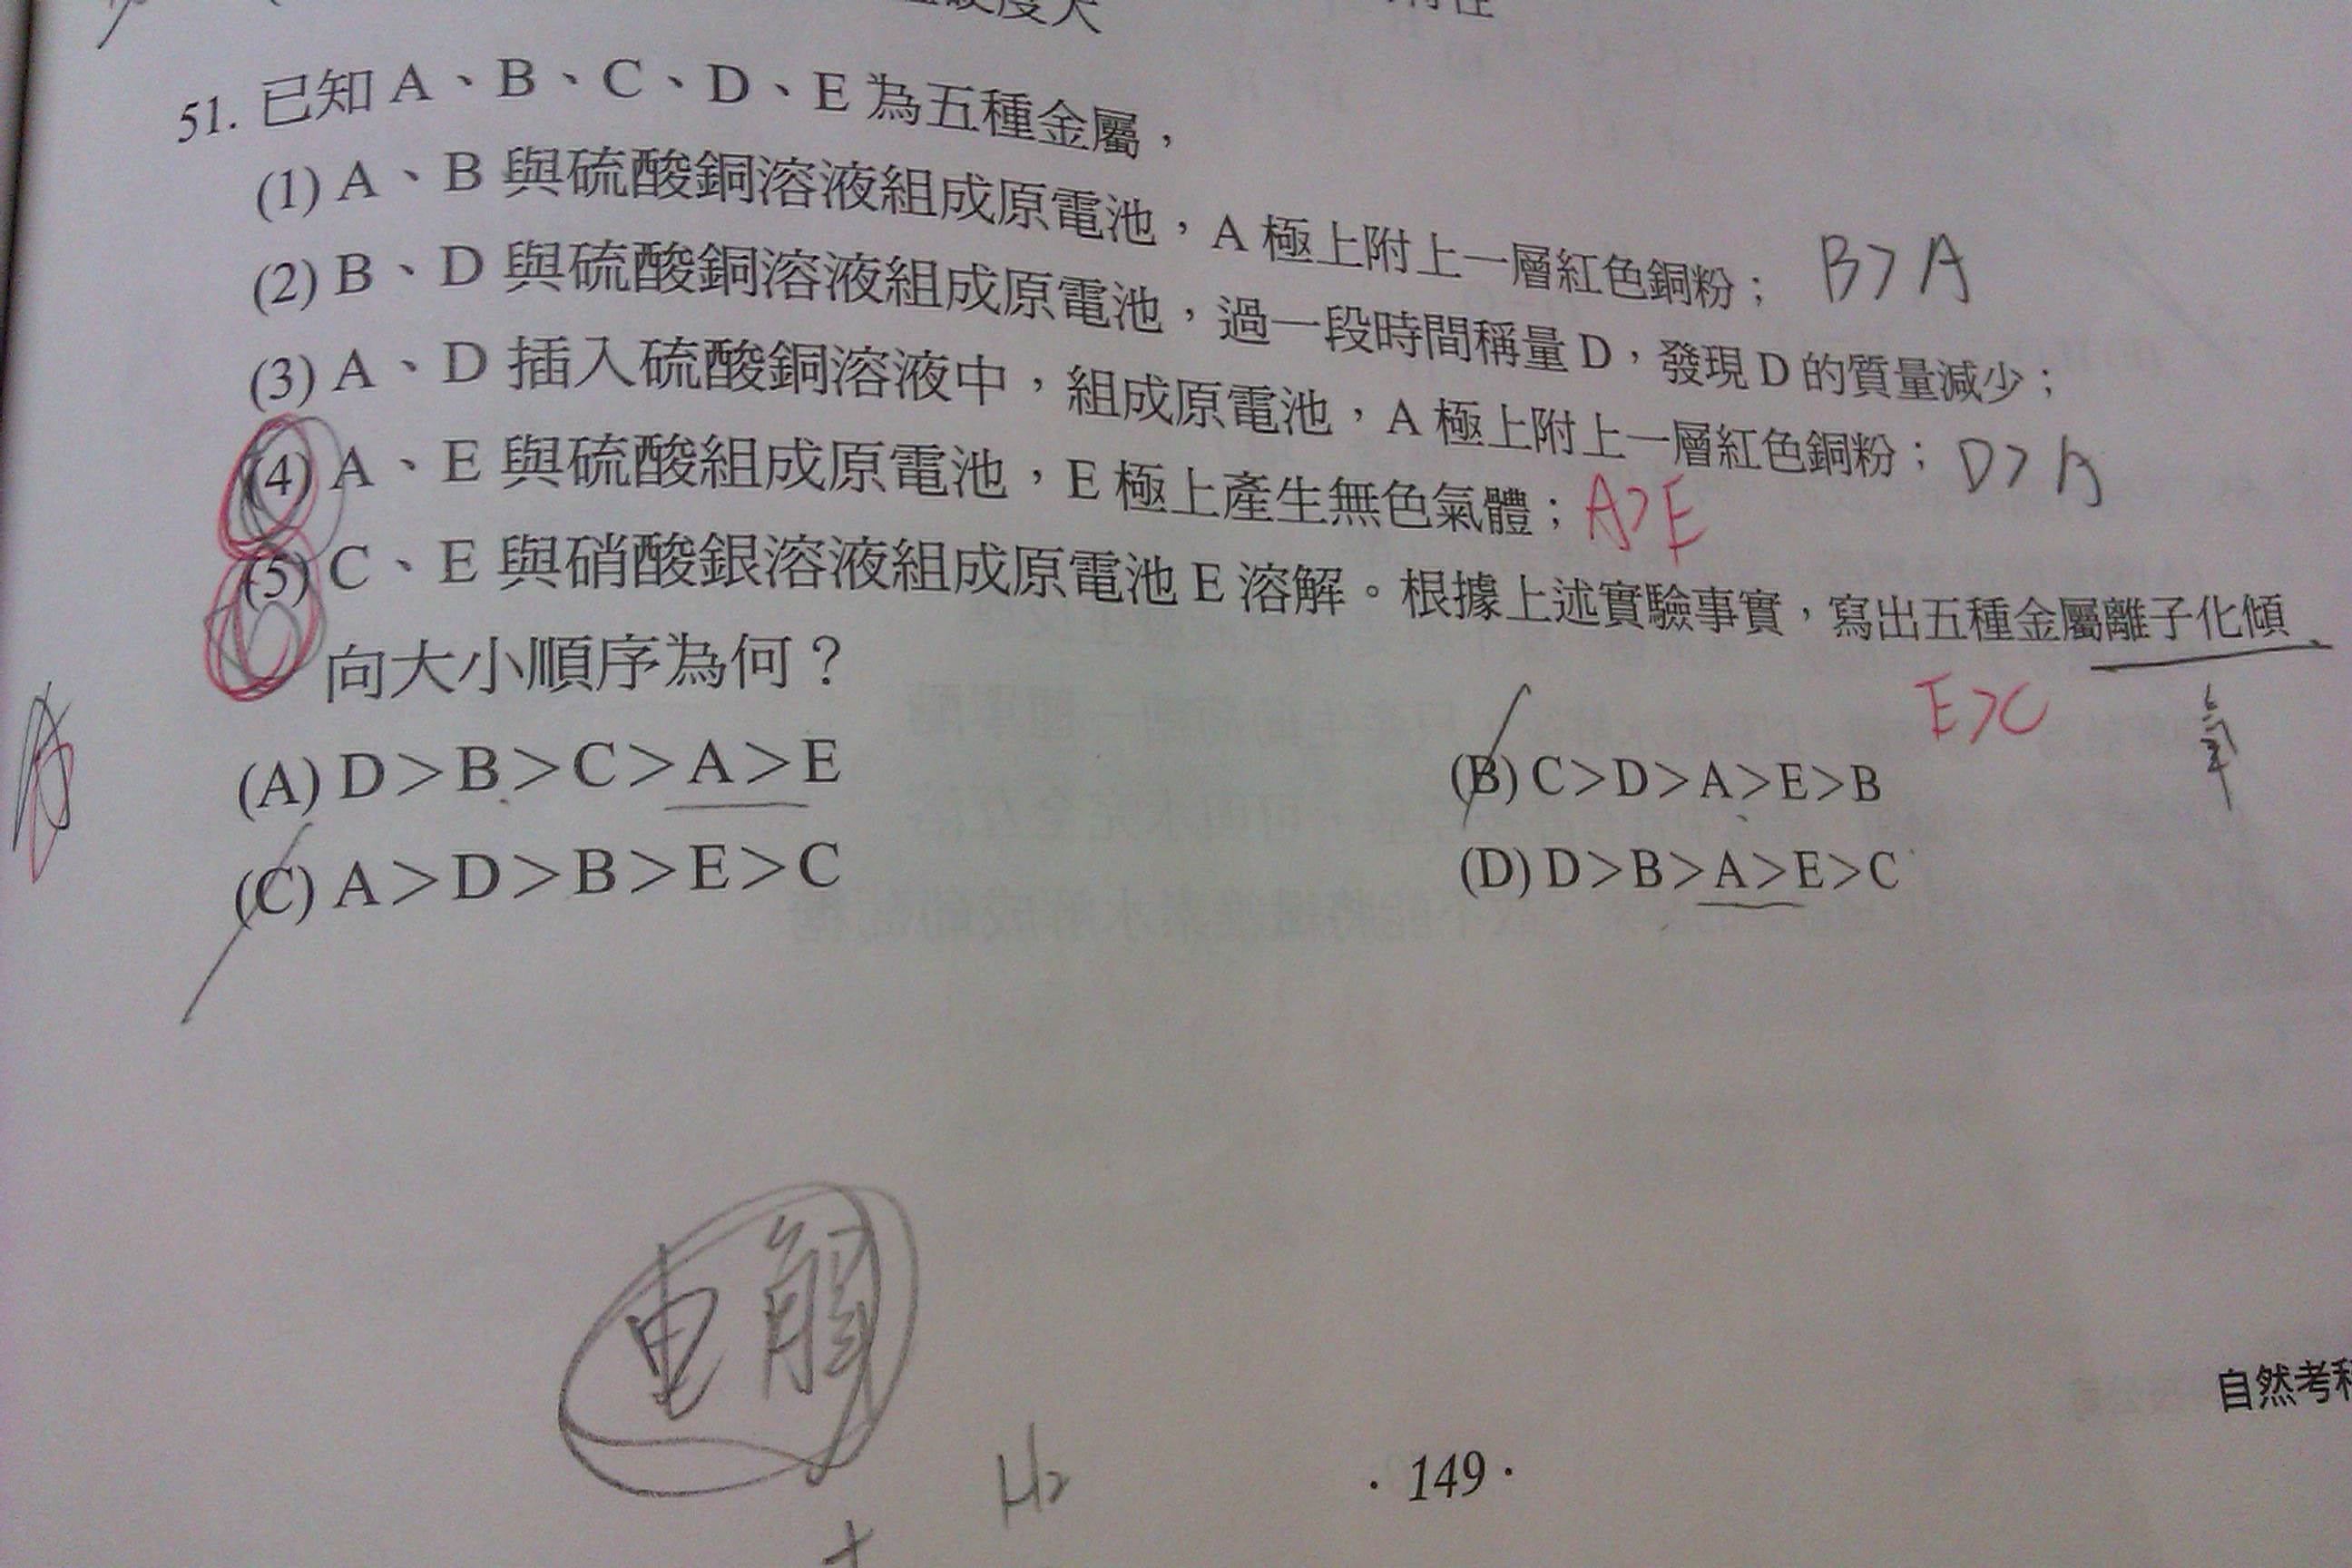 硬度大
51. 已知 A、B、C、D、E 為五種金屬，
(1) A、B 與硫酸銅溶液組成原電池，A 極上附上一層紅色銅粉； B > A
(2) B、D 與硫酸銅溶液組成原電池，過一段時間稱量 D，發現 D 的質量減少；
(3) A、D 插入硫酸銅溶液中，組成原電池，A 極上附上一層紅色銅粉； D > A
(4) A、E 與硫酸組成原電池，E 極上產生無色氣體； A > E
(5) C、E 與硝酸銀溶液組成原電池 E 溶解。根據上述實驗事實，寫出五種金屬離子化傾
向大小順序為何？ E > C
(A) D＞B＞C＞A＞E (B) C＞D＞A＞E＞B
(C) A＞D＞B＞E＞C (D) D＞B＞A＞E＞C
電解
自然考科
H₂
· 149 ·
+